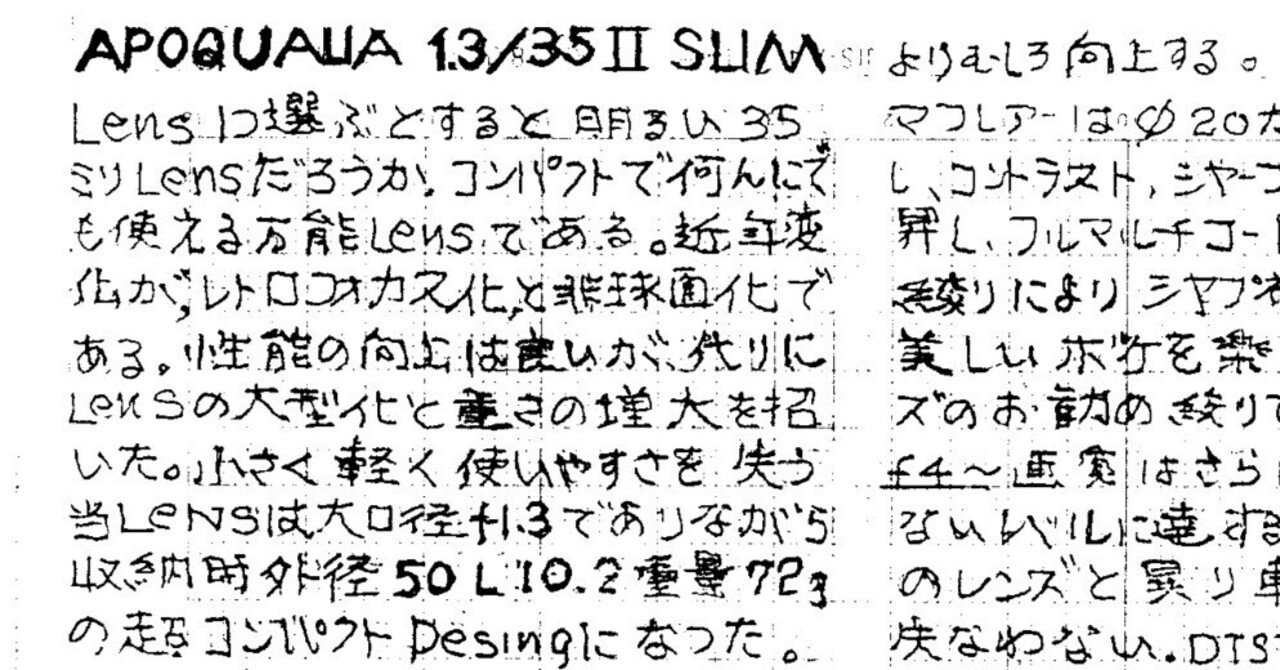 APOQUALIA 1.3/35 II SLIM
Lens 1つ選ぶとすると明るい35
ミリLensだろうか。コンパクトで何んにで
も使える万能Lensである。近年変
化が、レトロフォカス化と非球面化で
ある。性能の向上は良いが、代りに
LENSの大型化と重さの増大を招
いた。小さく軽く使いやすさを失う
当LENSは大口径f1.3でありながら
収納時外径50 L 10.2 重量72g
の超コンパクトDesingになった。
よりむしろ向上する。
マフレアーはφ20
し、コントラスト、シャープ
昇し、フルマルチコー
絞りによりシャプネ
美しいボケを楽
ズのお勧め絞り
f4〜画質はさら
ないレベルに達する
のレンズと異り
失なわない。DIS